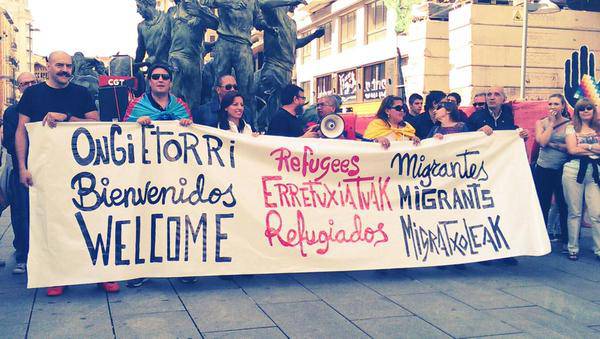 CGT
ONGI ETORRI
Bienvenidos
WELCOME
Refugees
ERREFUXIATUAK
Refugiados
Migrantes
MIGRANTS
MIGRATXOLEAK